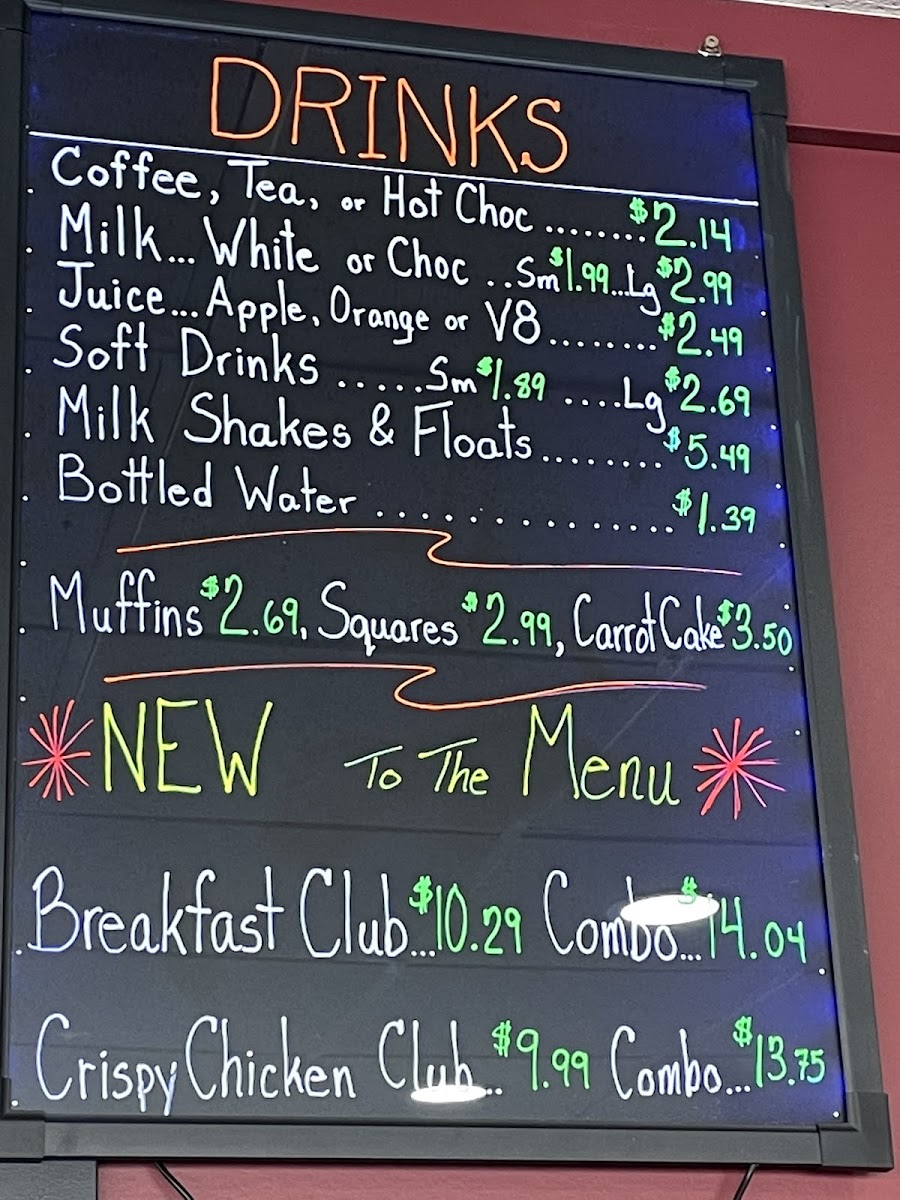 DRINKS
Coffee, Tea, or Hot Choc ........$2.14
Milk... White or Choc ..Sm$1.99...Lg$2.99
Juice...Apple, Orange or V8........$2.49
Soft Drinks .....Sm$1.89 ....Lg$2.69
Milk Shakes & Floats........$5.49
Bottled Water ..............$1.39
Muffins $2.69, Squares $2.99, Carrot Cake $3.50
NEW To The Menu
Breakfast Club...$10.29 Combo...$14.04
Crispy Chicken Club...$9.99 Combo...$13.75